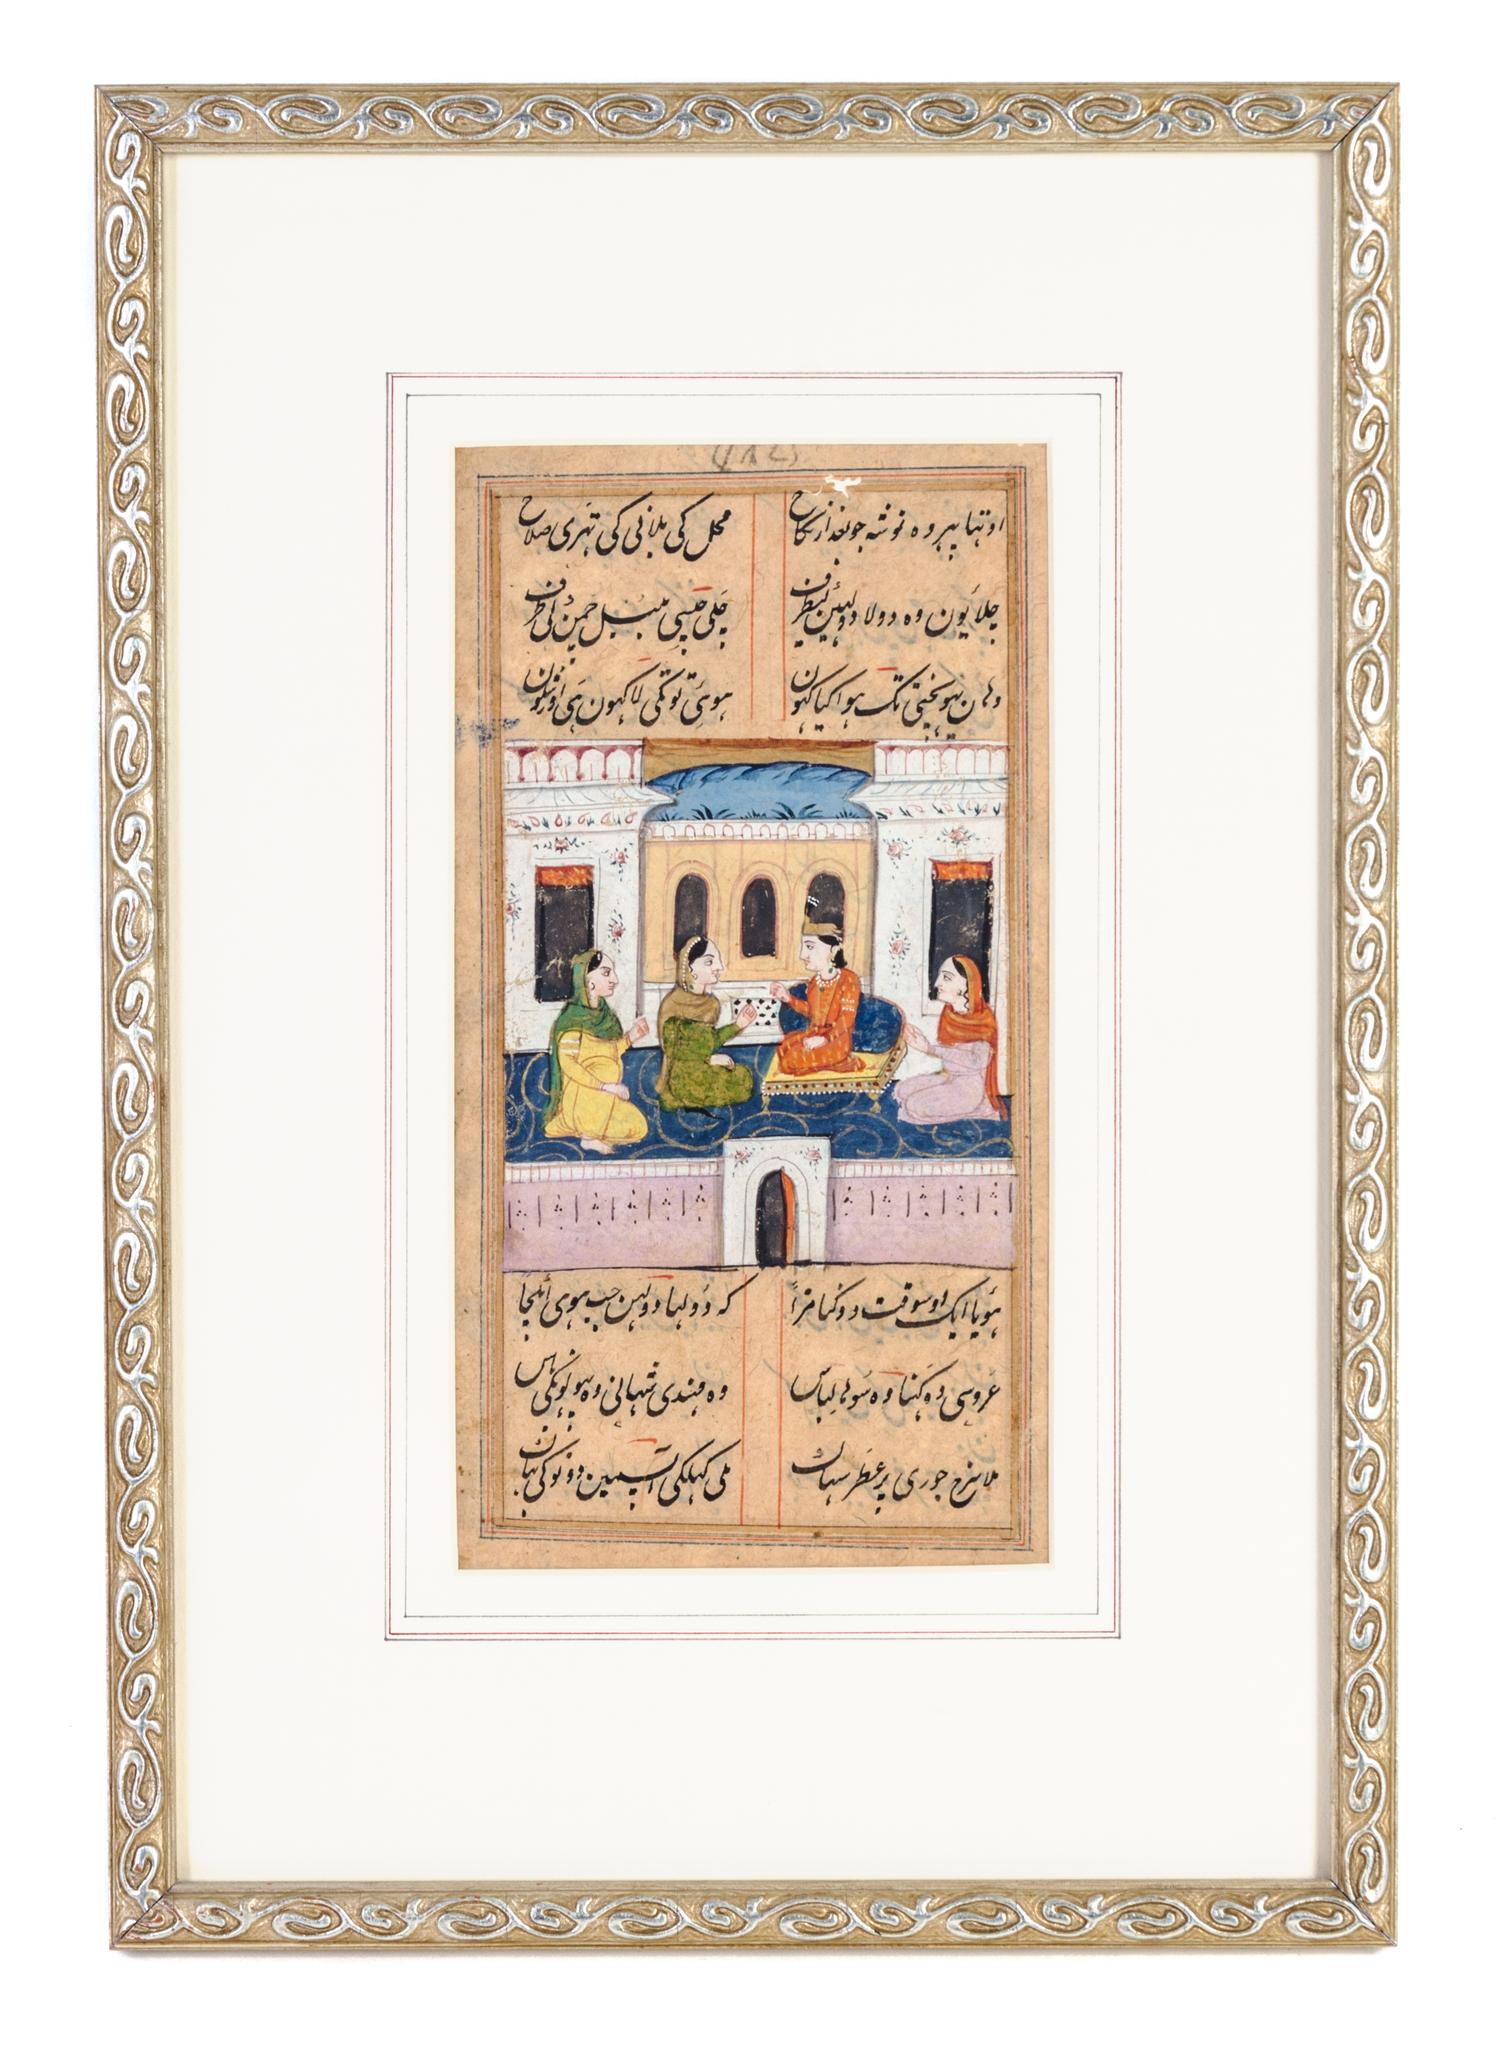 اوتہا پہر وہ نوشہ جو بعد از نکاح محل کی بلانی کی تہری صلاح
چلا یون وہ دولا دولہن کیطرف چلی جیسی بلبل چمن کی طرف
وہان پہونچتی تک ہوا کیا کہون ہوئی توتکی لاکہون ہی اور شگون
ہویا ایک اوسوقت دوگنا مزا کہ دولہا دولہن جب ہوئی ایکجا
عروسی وہ گہنا وہ سوہا لباس وہ مہندی سہانی وہ پہولونکی باس
ملا سرخ جوری پر عطر سہاگ ملی کہلکی آپسمین دونوکی بہاگ